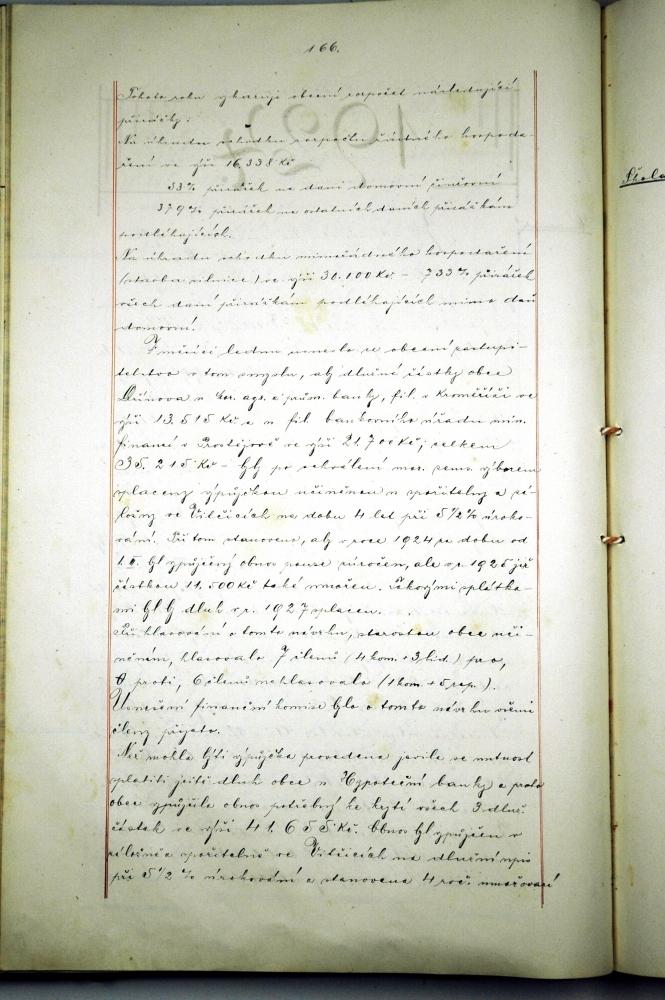 166.
Tohoto roku vykazuje obecní rozpočet následující
přirážky:
Na úhradu schodku rozpočtu řádného hospoda-
ření ve výši 16.338 Kč
33% přirážek na dani domovní činžovní
379% přirážek na ostatních daních přirážkám
podléhajících.
Na úhradu schodku mimořádného hospodaření
(stavba silnice) ve výši 30.100 Kč – 733% přirážek
všech daní přirážkám podléhajících mimo daň
domovní.
V měsíci lednu usneslo se obecní zastupi-
telstvo v tom smyslu, aby dlužné částky obce
u banky, fil. v Kroměříži ve
výši 13.515 Kč a u fil. bankovního úřadu min.
financí v Prostějově ve výši 21.700 Kč, celkem
35.215 Kč – byly po schválení výborem
splaceny výpůjčkou učiněnou u spořitelny a zá-
ložny ve Vlčicích na dobu 4 let při 5 1/2% úroko-
vání. Při tom stanoveno, aby v roce 1924 ze dobu od
1. byl vypůjčený obnos pouze zúročen, ale v r. 1925 již
částkou 11.500 Kč také umořen. Takovými splátka-
mi byl by dluh v r. 1927 splacen.
Při hlasování o tomto návrhu, starostou obce uči-
něném, hlasovalo 7 členů (4 kom. + 3 lid.) pro,
0 proti, 6 členů nehlasovalo (1 kom. + 5 rep.).
Usnesení finanční komise bylo o tomto návrhu všemi
členy přijato.
Než mohla býti výpůjčka provedena jevila se nutnost
splatiti ještě dluh obce u Hypoteční banky a proto
obec vypůjčila obnos potřebný ke krytí všech 3 dluž.
částek ve výši 41.655 Kč. Obnos byl vypůjčen v
záložně a spořitelně ve Vlčicích na dlužní úpis
při 5 1/2 % úrokování a stanovena 4 roč. umořovací
Škola